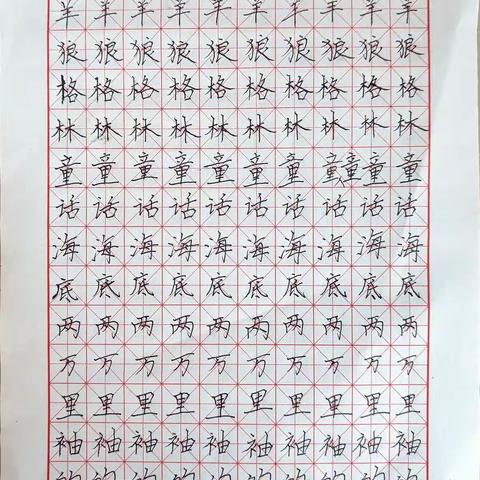 羊羊羊羊羊羊羊羊羊羊
狼狼狼狼狼狼狼狼狼狼
格格格格格格格格格格
林林林林林林林林林林
童童童童童童童童童童童
话话话话话话话话话话
海海海海海海海海海海
底底底底底底底底底底
两两两两两两两两两两
万万万万万万万万万万
里里里里里里里里里里
袖袖袖袖袖袖袖袖袖袖